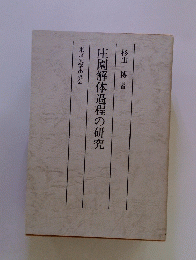 杉山 博 著
庄園解体過程の研究
東京大学出版会